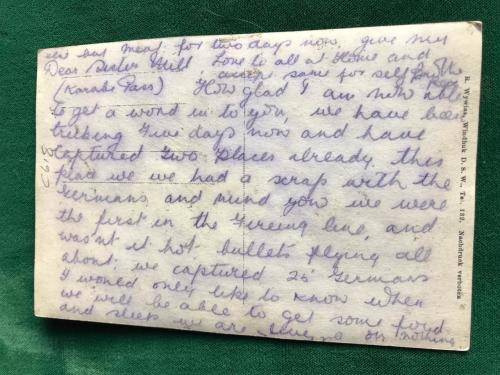 else but meat for two days now, give my
Dear Sister Love to all at Home and
accept same for self
(Karibib Pass) How glad I am now able
to get a word in to you, we have been
treking five days now and have
captured two places already. this
place we we had a scrap with the
Germans and mind you we were
the first in the fireing line, and
wasn't it hot bullets flying all
about, we captured 25 Germans
I would only like to know when
we will be able to get some food
and sleep we are living on nothing
Nachdruck verboten